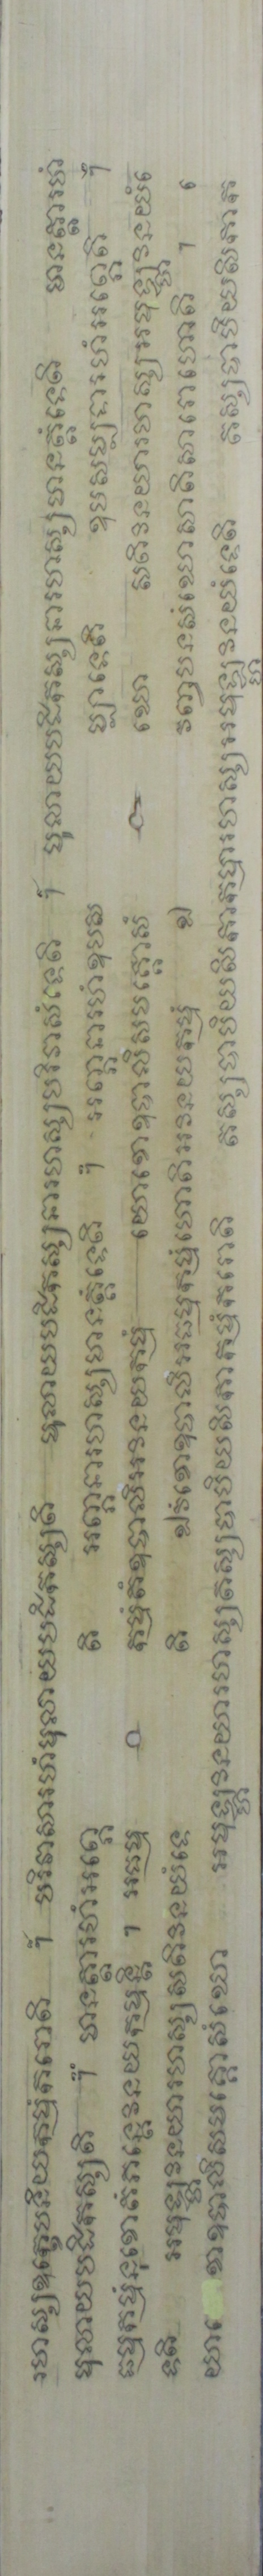 រហស្សឧក្ខេបនិយកម្មំករោតិ ។ បរិវាសារហំមុលាយបដិកស្សតិ មុលាយបដិកស្សនារហស្សបរិវាសំទេតិ ។ មុលាយបដិកស្សនារហស្សមានត្តំទេតិ មានត្តារហំ
មុលាយបដិកស្សតិ ។ មានត្តារហំអព្ភេ តិ អព្ភនារហស្សមានត្តំទេតិ ។ អព្ភនារហំឧបស ម្បាទេតិ ឧបសម្បទារហំអព្ភេតិ ។
ធម្មកម្មំនុខោតំភន្តេវិនយកម្មន្តិ ។ អធម្ម កម្មំតំឧបាលិអវិនយកម្មំ យោខោឧបាលិសមគ្គោសំ ឃោ សតិវិនយារហស្សអមុឡ្ហវិនយំេ
ទតិ អមុឡ្ហវិនយារហស្សសតិវិនយំទេ តិ ឯវំខោឧបាលិអធម្មកម្មំហោតិអវិនយកម្មំ ឯ វញ្ចបនសំឃោសាតិសារោហោតិ ។ េ
យាខោឧបាលិសមគ្គោសំឃោ អមុឡ្ហវិនយារហស្សតស្សបាបិយសិកាកម្មំករោតិ តស្សបាបិយសិកាកម្មារហស្សអមុឡ្ហវិនយំទេតិ តស្សបាបិយសិកាក